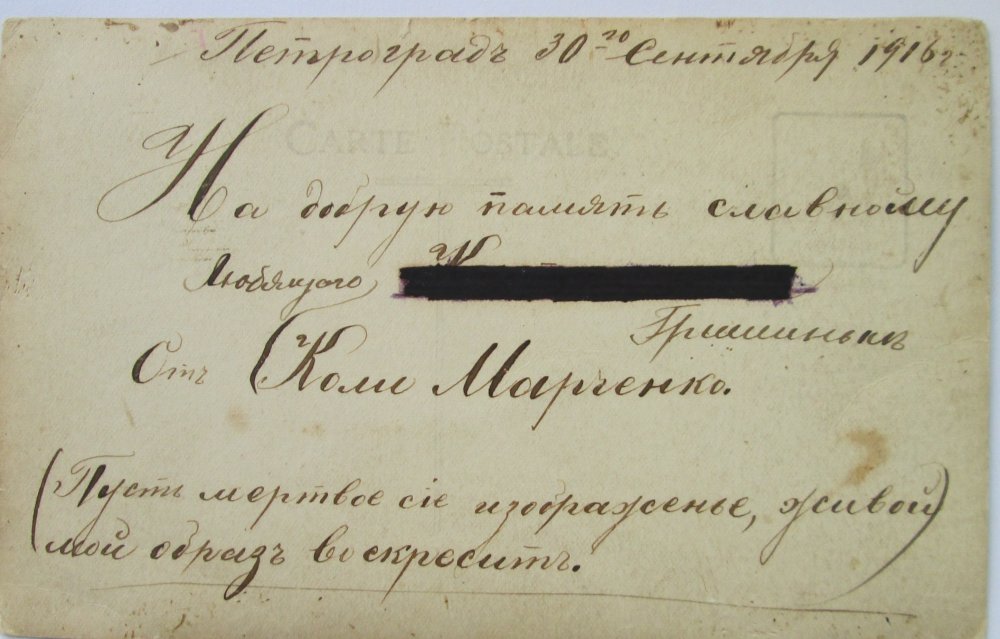 Петроградъ 30-го Сентября 1916 г.
CARTE POSTALE
На добрую память славному
Любящаго
Гришиньки
Отъ (Коли Марченко.
(Пусть мертвое сіе изображенье, живой)
мой образъ воскреситъ.